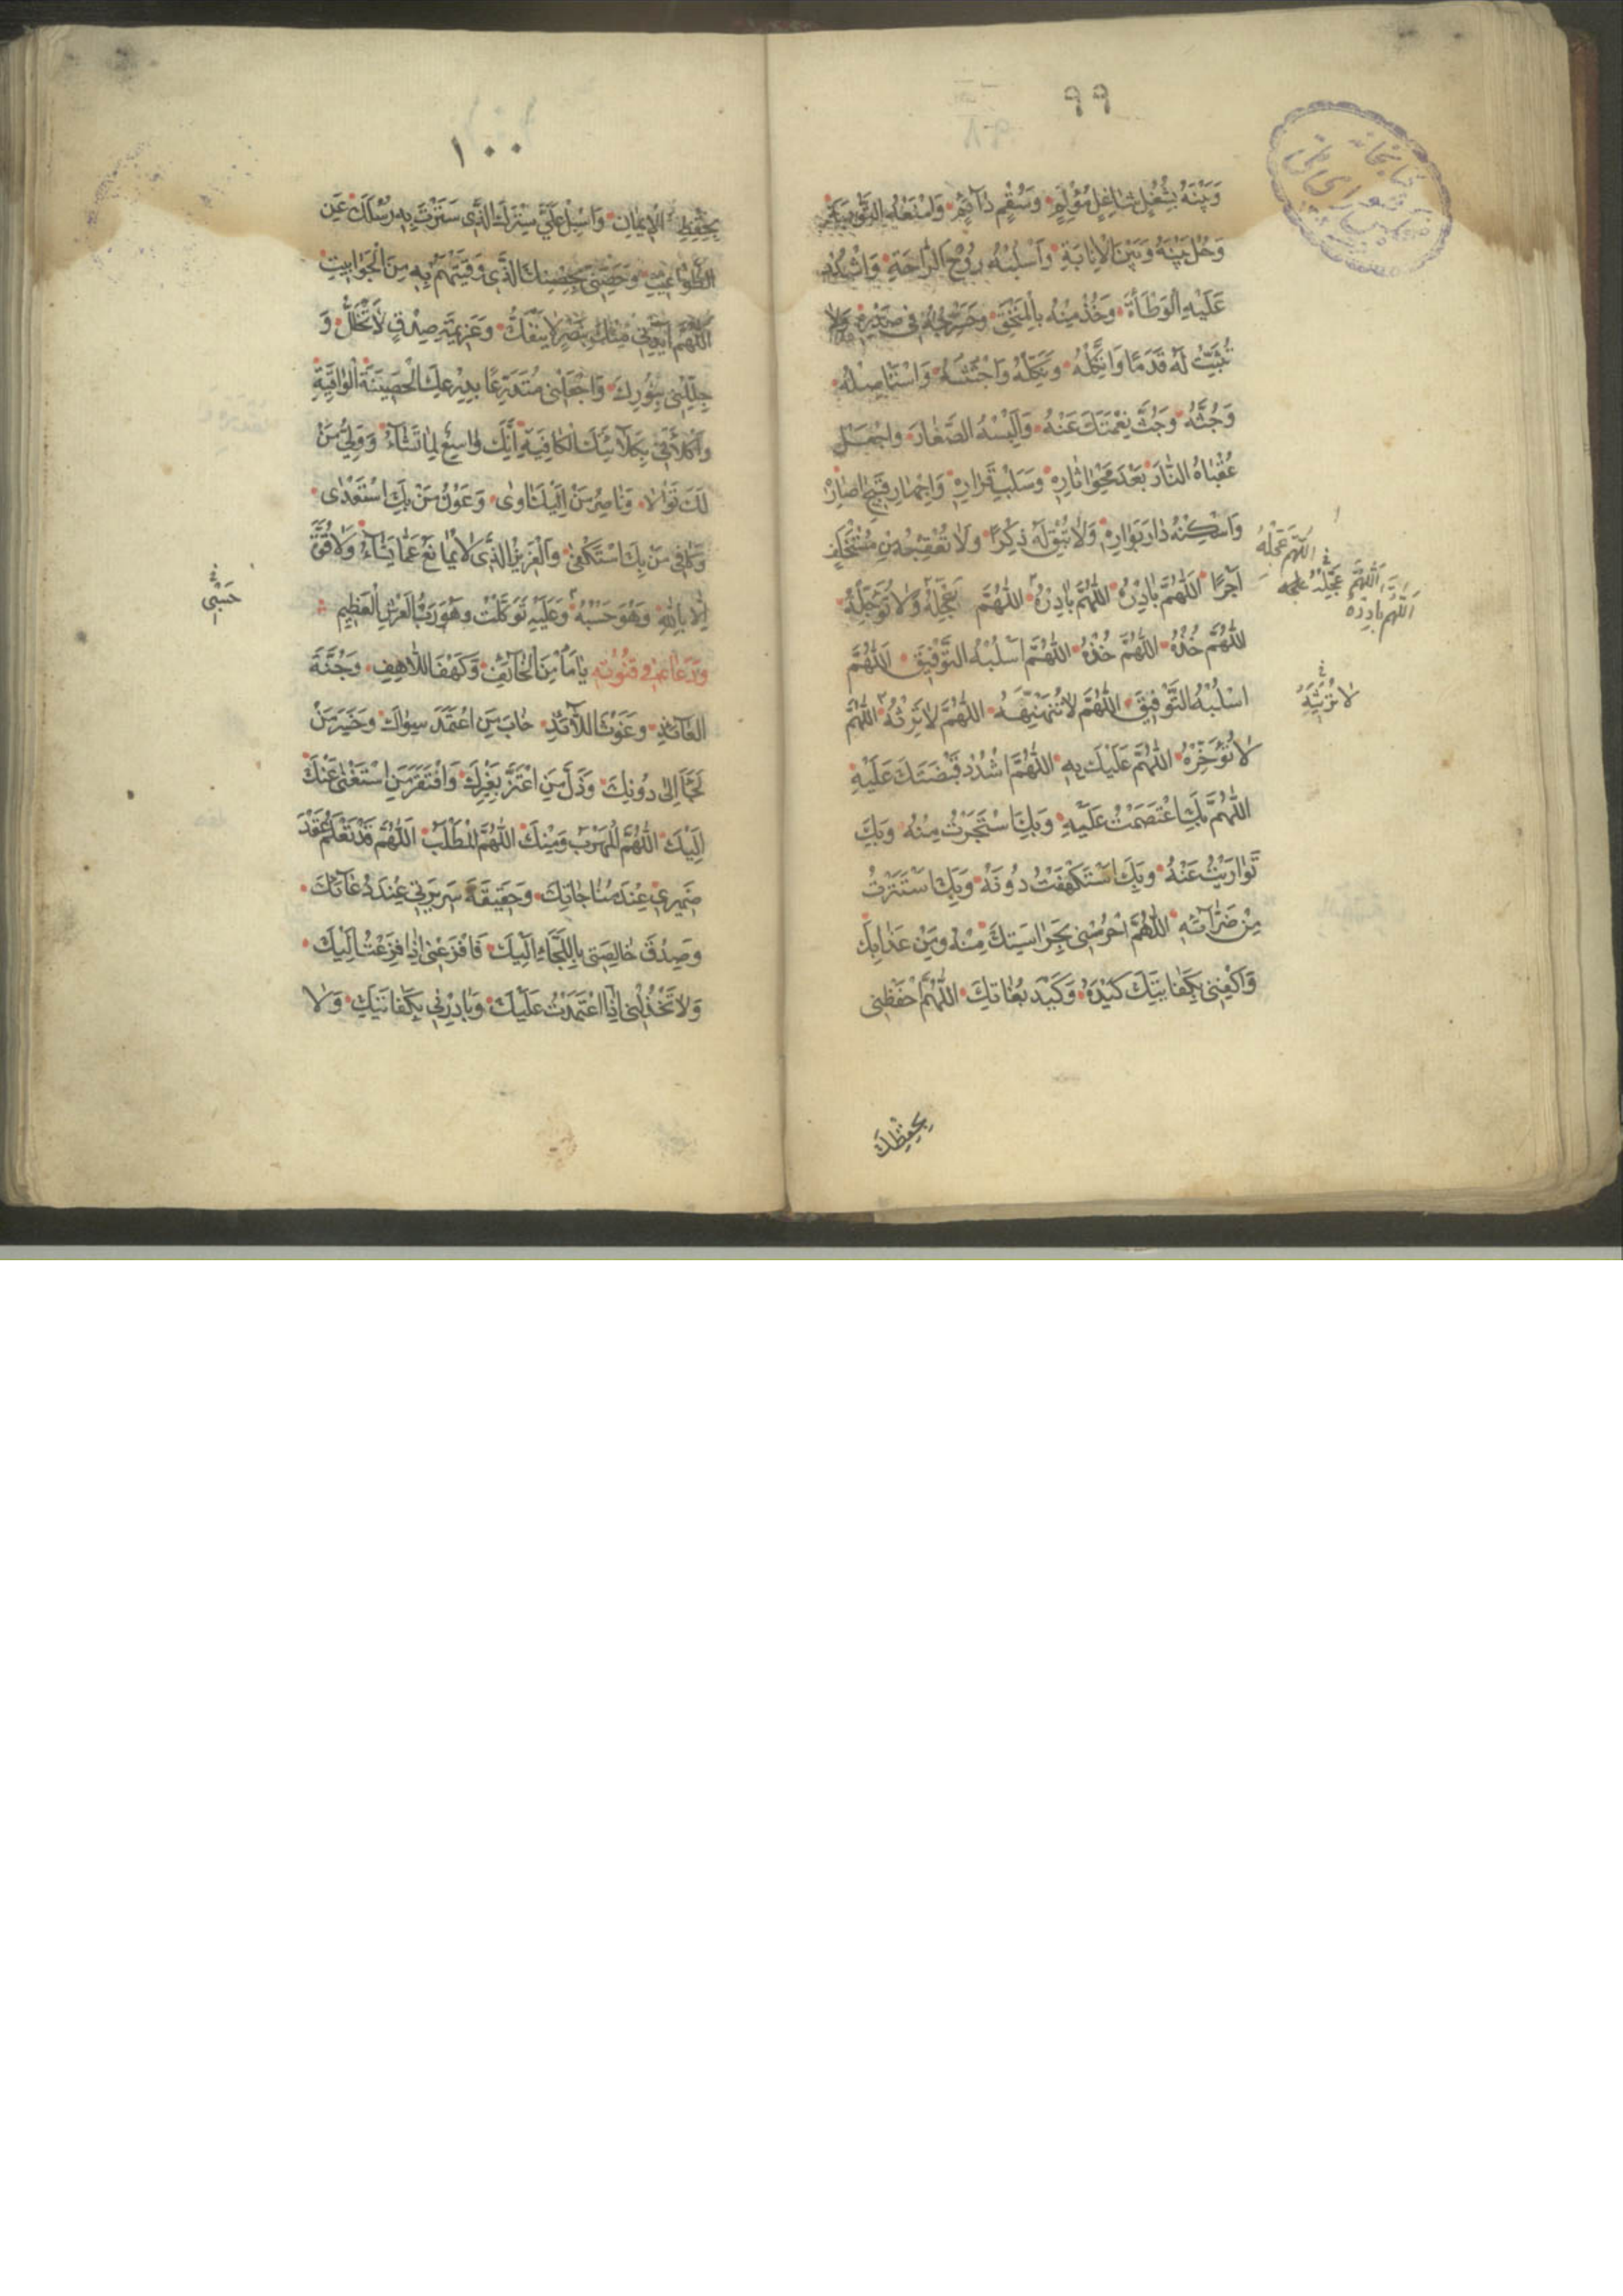 ٩٩
وَبَيْنَهُ بِشُغْلٍ شَاغِلٍ مُؤْلِمٍ وَسُقْمٍ دَائِمٍ وَامْنَعْهُ التَّوْبَةَ
وَحُلْ بَيْنَهُ وَبَيْنَ الْاِنَابَةِ وَاَسْلِبْهُ رَوْحَ الرَّاحَةِ وَاشْدُدْ
عَلَيْهِ الْوَطْأَةَ وَخُذْ مِنْهُ بِالْمُخَنَّقِ وَحَشْرِجْهُ فِى صَدْرِهِ وَلا
تُثَبِّتْ لَهُ قَدَمًا وَاثْكِلْهُ وَنَكِّلْهُ وَاجْتَثَّهُ وَاسْتَأْصِلْهُ
وَجُثَّهُ وَجُثَّ نِعْمَتَكَ عَنْهُ وَاَلْبِسْهُ الصَّغَارَ وَاجْعَلْ
عُقْبَاهُ النَّارَ بَعْدَ مَحْوِ اثَارِهِ وَسَلْبِ قَرَارِهِ وَاِجْهَارِ قَبِيحِ اصَارِهِ
وَاَسْكِنْهُ دَارَ بَوَارِهِ وَلَا تُبْقِ لَهُ ذِكْرًا وَلَا تُعَقِّبْهُ مِنْ مُسْتَخْلَفٍ
اَجْرًا اَللّٰهُمَّ بَادِرْهُ اَللّٰهُمَّ بَادِرْهُ اَللّٰهُمَّ عَجِّلْهُ وَلَا تُؤَجِّلْهُ
اللّٰهُمَّ خُذْهُ اللّٰهُمَّ خُذْهُ اللّٰهُمَّ اسْلُبْهُ التَّوْفِيقَ اَللّٰهُمَّ
اسْلُبْهُ التَّوْفِيقَ اَللّٰهُمَّ لَا تُنْهِضْهُ اللّٰهُمَّ لَا تَرِثْهُ اللّٰهُمَّ
لَا تُؤَخِّرْهُ اللّٰهُمَّ عَلَيْكَ بِهِ اللّٰهُمَّ اشْدُدْ قَبْضَتَكَ عَلَيْهِ
اَللّٰهُمَّ بِكَ اعْتَصَمْتُ عَلَيْهِ وَبِكَ اسْتَجَرْتُ مِنْهُ وَبِكَ
تَوَارَيْتُ عَنْهُ وَبِكَ اسْتَكْهَفْتُ دُونَهُ وَبِكَ اسْتَتَرْتُ
مِنْ ضَرَّائِهِ اللّٰهُمَّ احْرُسْنِى بِحَرَاسَتِكَ مِنْهُ وَمِنْ عَذَابِكَ
وَاكْفِنِى بِكِفَايَتِكَ كَيْدَهُ وَكَيْدَ بُغَاتِكَ اللّٰهُمَّ احْفَظْنِى
بِحِفْظِكَ
اللّٰهُمَّ عَجِّلْهُ
اَللّٰهُمَّ بَادِرْهُ
١٠٠
بِحِفْظِ الْاِيمَانِ وَاَسْبِلْ عَلَىَّ سِتْرَكَ الَّذِى سَتَرْتَ بِهِ رُسُلَكَ عَنِ
الطَّوَاغِيتِ وَحَصِّنِّى بِحِصْنِكَ الَّذِى وَقَيْتَهُمْ بِهِ مِنَ الْجَوَابِيتِ
اَللّٰهُمَّ اَيِّدْنِى مِنْكَ بِنَصْرٍ لَا يَنْفَكُّ وَعَزِيمَةِ صِدْقٍ لَا تُحَلُّ وَ
جَلِّلْنِى بِنُورِكَ وَاجْعَلْنِى مُتَدَرِّعًا بِدِرْعِكَ الْحَصِينَةِ الْوَاقِيَةِ
وَاكْلَأْنِى بِكَلَائَتِكَ الْكَافِيَةِ اِنَّكَ وَاسِعٌ لِمَا تَشَاءُ وَوَلِىُّ مَنْ
لَكَ تَوَالَا وَنَاصِرُ مَنْ اِلَيْكَ اَوٰى وَعَوْنُ مَنْ بِكَ اسْتَعْدٰى
وَكَافِى مَنْ بِكَ اسْتَكْفٰى وَالْعَزِيزُ الَّذِى لَا يُمَانَعُ عَمَّا يَشَاءُ وَلَا قُوَّةَ
اِلَّا بِاللّٰهِ وَهُوَ حَسْبُهُ وَعَلَيْهِ تَوَكَّلْتُ وَهُوَ رَبُّ الْعَرْشِ الْعَظِيمِ
وَدَعَا ع فِى قُنُوتِهِ يَا مَأْمَنَ الْخَائِفِ وَكَهْفَ اللَّاهِفِ وَجُنَّةَ
الْعَائِذِ وَغَوْثَ اللَّائِذِ خَابَ مَنِ اعْتَمَدَ سِوَاكَ وَخَسِرَ مَنْ
لَجَأَ اِلٰى دُونِكَ وَذَلَّ مَنِ اعْتَزَّ بِغَيْرِكَ وَافْتَقَرَ مَنِ اسْتَغْنٰى عَنْكَ
اِلَيْكَ اللّٰهُمَّ الْمَهْرَبُ وَمِنْكَ اللّٰهُمَّ الْمَطْلَبُ اَللّٰهُمَّ قَدْ تَعْلَمُ عَقْدَ
ضَمِيرِى عِنْدَ مُنَاجَاتِكَ وَحَقِيقَةَ سَرِيرَتِى عِنْدَ دُعَائِكَ
وَصِدْقَ خَالِصَتِى بِاللَّجَاءِ اِلَيْكَ فَافْزَعْنِى اِذَا فَزِعْتُ اِلَيْكَ
وَلَا تَخْذُلْنِى اِذَا اعْتَمَدْتُ عَلَيْكَ وَبَادِرْنِى بِكِفَايَتِكَ وَلَا
حَسْبِى